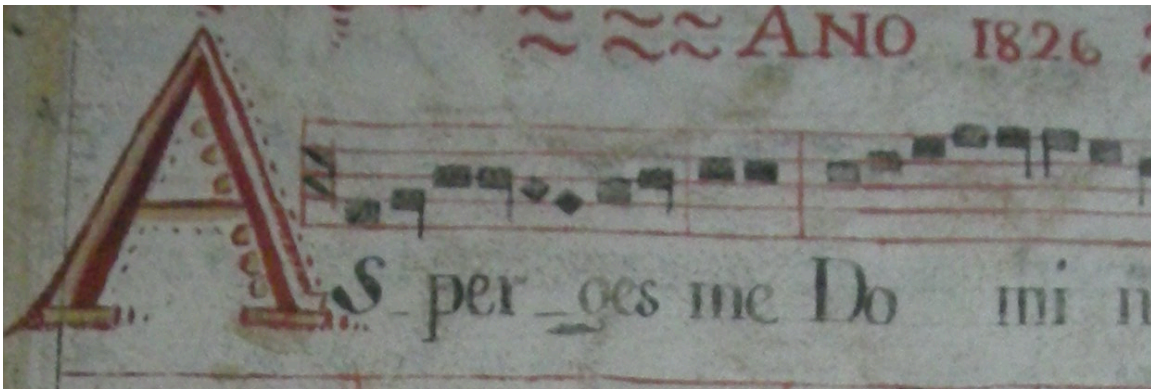 ANO 1826
AS_per_ges me Do mi n